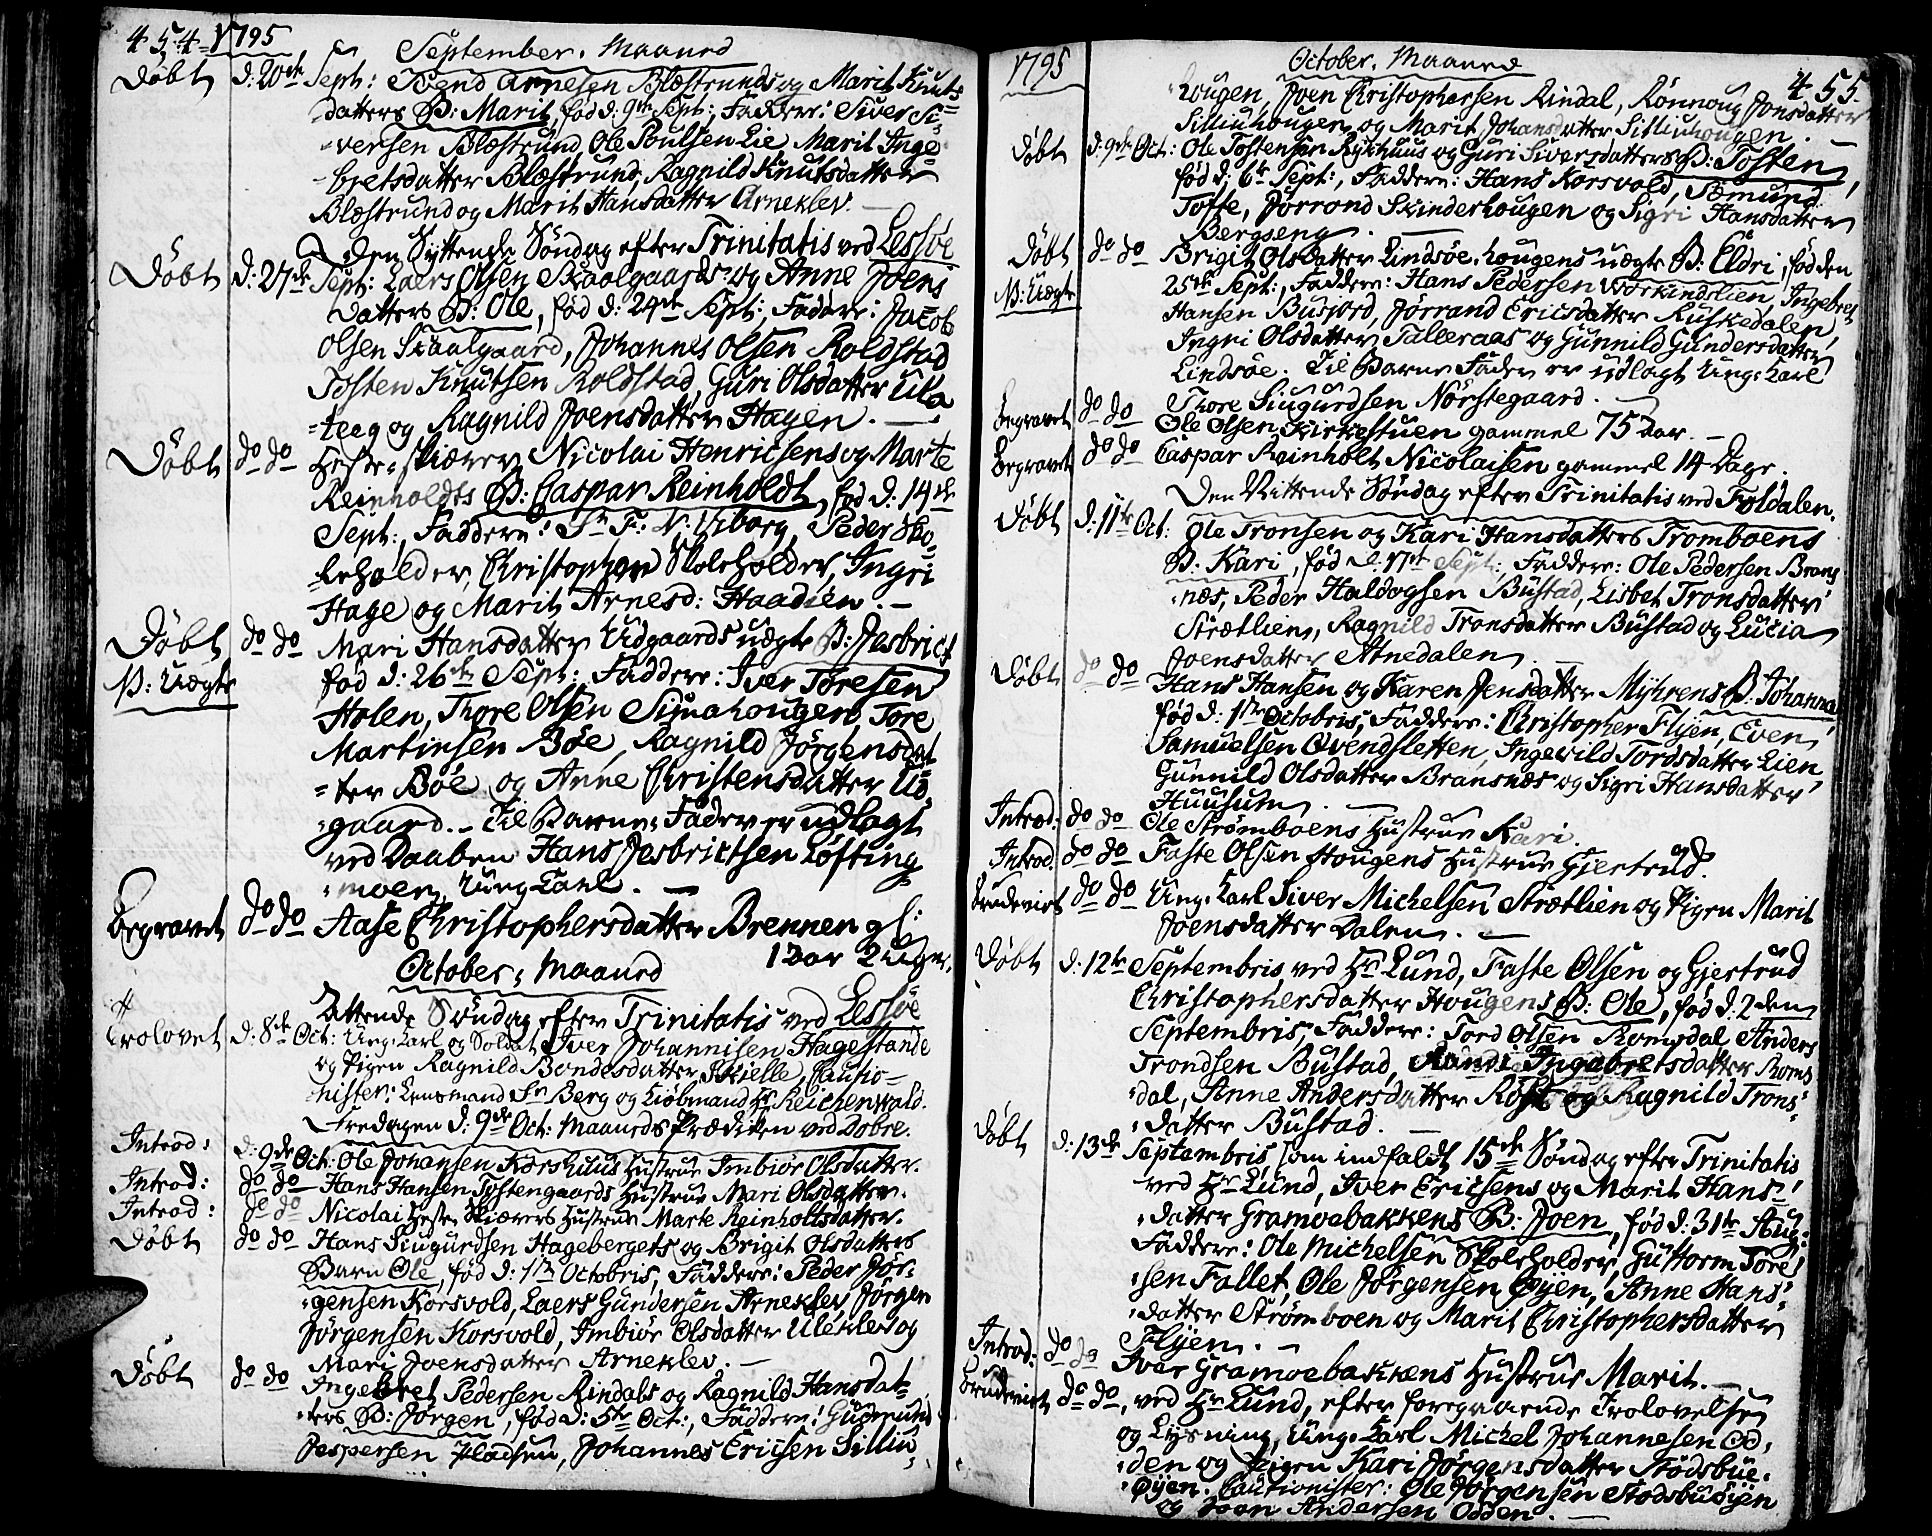 454 1795
September. Maaned
Døbt d: 20de Sept: Svend Arnesen Blæstruds og Marit Knuts
datters B: Marit, fød d: 9de Sept:, Faddere: Siver Si-
versen Blæstrud, Ole Poulsen Lie, Marit Inge-
bretsdatter Blæstrud, Ragnild Knutsdatter
Blæstrud og Marit Hansdatter Arneklev.
Den Syttende Søndag efter Trinitatis ved Lessøe
Døbt d: 27de Sept: Laers Olsen Skaalgaards og Anne Joens
datters B: Ole, fød d: 24de Sept:, Faddere: Jacob
Olsen Skaalgaard, Johannes Olsen Roldstad
Tosten Knutsen Roldstad, Guri Olsdatter Ula
teeg og Ragnild Joensdatter Hagen.
Døbt do do Heste-Skiærer Nicolai Henricsens og Marte
Reinholdts B: Caspar Reinholdt, fød d: 14de
Sept:, Faddere: Sr F: N: Wiborg, Peder Sko-
leholder, Christopher Skoleholder, Ingri
Hage og Marit Arnesd: Haadien.
Døbt do do Mari Hansdatter Udgaards uægte B: Jesbrict
N: Uægte fød d: 26de Sept:, Faddere: Iver Toresen
Holen, Thore Olsen Sijnahougen, Tore
Martinsen Bøe, Ragnild Jørgensdat
ter Bøe og Anne Christensdatter Ud
gaard. - Til Barne-Fader er udlagt
ved Daaben Hans Jesbrictsen Løfting
moen, Ung Carl.
Begravet do do Aase Christophersdatter Brennen gl:
1 Aar 2 Uger.
October, Maaned
Attende Søndag efter Trinitatis ved Lessøe
Trolovet d: 8de Oct: Ung-Karl og Soldat Iver Johannisen Hagestande
og Pigen Ragnild Bondesdatter Skielle, Cautio-
nister: Lensmand Sr Berg og Kiøbmand Hr Reichenwald.
Fredagen d: 9de Oct: Maaneds Prædiken ved Dobre.
Introd: d: 9de Oct: Ole Johansen Korshuus Hustrue Imbiør Olsdatter.
Introd: do do Hans Hansen Tostengaards Hustrue Mari Olsdatter.
Introd: do do Nicolai Heste-Skiærers Hustrue Marte Reinholtsdatter.
Døbt do do Hans Siugurdsen Hagebergets og Brigit Olsdatters
Barn Ole, fød d: 1te Octobris, Faddere: Peder Jør-
gensen Korsvold, Laers Gundersen Arneklev, Jørgen
Jørgensen Korsvold, Imbiør Olsdatter Uleklev og
Mari Joensdatter Arneklev.
Døbt do do Ingebret Pedersen Rindals og Ragnild Hansdat-
ters B: Jørgen, fød d: 5te Oct:, Faddere: Gudmund
Jespersen Pladsen, Johannes Ericsen Silliu
1795 October. Maaned 455
hougen, Joen Christophersen Rindal, Rønnoug Jonsdatter
Silliuhougen og Marit Johansdatter Silliuhougen.
Døbt d: 9de Oct: Ole Tostensen Rykhuus og Guri Siversdatters B: Tosten,
fød d: 6te Sept:, Faddere: Hans Korsvold, Romund
Tofte, Jørrond Skinderhougen og Sigri Hansdatter
Bergseng.
Døbt do do Brigit Olsdatter Lindsøe-hougens uægte B: Eldri, fød den
N: Uægte 25de Sept:, Faddere: Hans Pedersen Workindslien, Ingebret
Hansen Busjord, Jørrand Ericsdatter Ruskedalen,
Ingri Olsdatter Talleraas og Gunnild Gundersdatter
Lindsøe. Til Barne Fader er udlagt Ung-Karl
Thore Siugurdsen Nørstegaard.
Begravet do do Ole Olsen Kirkestuen gammel 75 Aar.
Begravet do do Caspar Reinholt Nicolaisen gammel 14 Dage.
Den Nittende Søndag efter Trinitatis ved Foldalen.
Døbt d: 11te Oct: Ole Tronsen og Kari Hansdatters Tromboens
B: Kari, fød d: 17de Sept:, Faddere: Ole Pedersen Brans
næs, Peder Haldogsen Bustad, Lisbet Tronsdatter
Strætlien, Ragnild Tronsdatter Bustad og Lucia
Joensdatter Atnedalen.
Døbt do do Hans Hansen og Karen Jensdatter Mijhrens B: Johanna,
fød d: 1te Octobris, Faddere: Christopher Flijen, Even
Samuelsen Øvendsletten, Ingevild Tordsdatter Lien
Gunnild Olsdatter Bransnæs og Sigri Hansdatter
Huusum.
Introd: do do Ole Strømboens Hustrue Kari.
Introd. do do Faste Olsen Hougens Hustrue Gjertrud.
Brudeviet do do Ung-Karl Siver Michelsen Strætlien og Pigen Marit
Joensdatter Dalen.
Døbt d: 12te Septembris ved Hr Lund, Faste Olsen og Gjertrud
Christophersdatter Hougens B: Ole, fød d: 2den
Septembris, Faddere: Tord Olsen Romsdal, Anders
Trondsen Bustad, Randi Ingebretsdatter Roms
dal, Anne Andersdatter Røst og Ragnild Trons-
datter Bustad.
Døbt d: 13de Septembris som indfaldt 15de Søndag efter Trinitatis
ved Hr Lund, Iver Ericsens og Marit Hans-
datter Gramoebakkens B: Joen, fød d: 31te Aug:
Faddere: Ole Michelsen Skoleholder, Guttorm Tore
sen Fallet, Ole Jørgensen Øyen, Anne Hans-
datter Strømboen og Marit Christophersdatter
Flijen.
Introd: do do Iver Gramoebakkens Hustrue Marit.
Brudeviet do do, ved Hr Lund, efter foregaaende Trolovelse
og Lysning, Ung-Karl Michel Johannesen Od-
den og Pigen Kari Jørgensdatter Stødsbue-
øyen. Cautionister: Ole Jørgensen Stodsbuøijen
og Joen Andersen Odden.